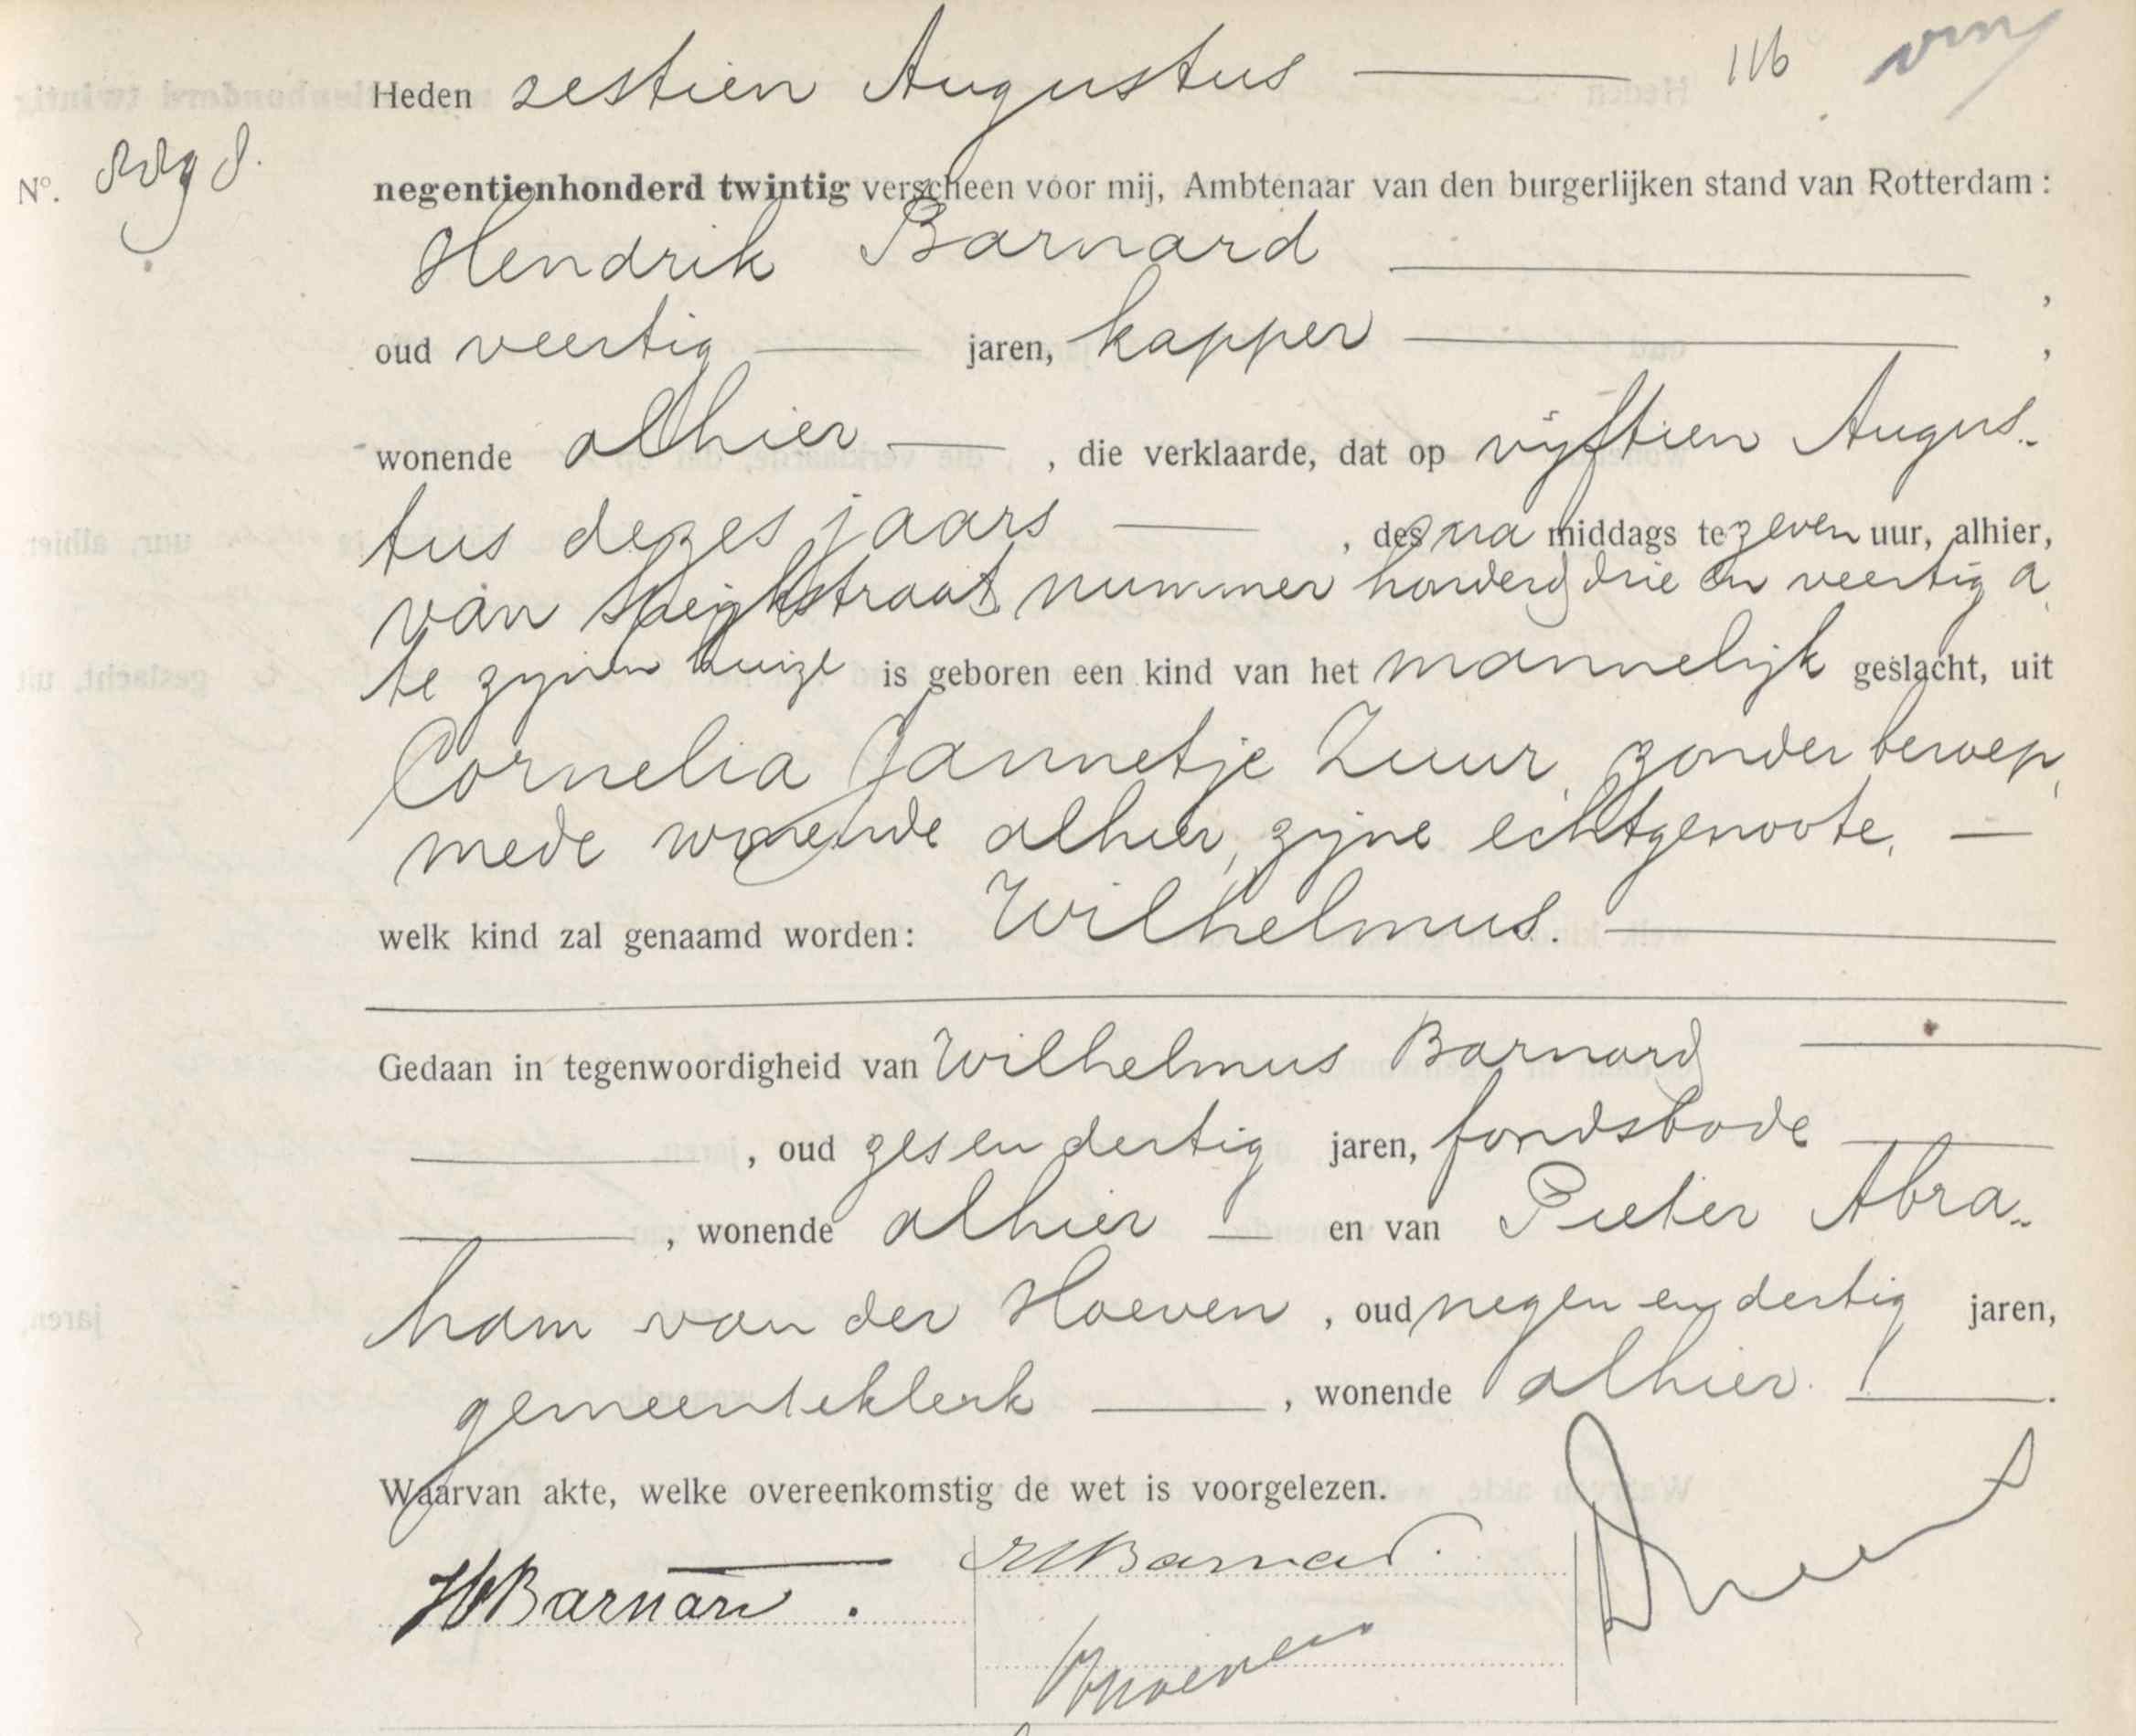 Heden zestien Augustus 116
No.
negentienhonderd twintig verscheen voor mij, Ambtenaar van den burgerlijken stand van Rotterdam :
Hendrik Barnard ,
oud veertig jaren, kapper ,
wonende alhier , die verklaarde, dat op vijftien Augus-
tus dezes jaars , des na middags te zeven uur, alhier,
van Speijkstraat nummer honderd drie en veertig a,
te zijnen huize is geboren een kind van het mannelijk geslacht, uit
Cornelia Jannetje Zuur, zonder beroep,
mede wonende alhier, zijne echtgenoote,
welk kind zal genaamd worden: Wilhelmus.
Gedaan in tegenwoordigheid van Wilhelmus Barnard
, oud zes en dertig jaren, fondsbode
, wonende alhier en van Pieter Abra-
ham van der Hoeven , oud negen en dertig jaren,
gemeenteklerk , wonende alhier.
Waarvan akte, welke overeenkomstig de wet is voorgelezen.
HBarnard. WBarnard.